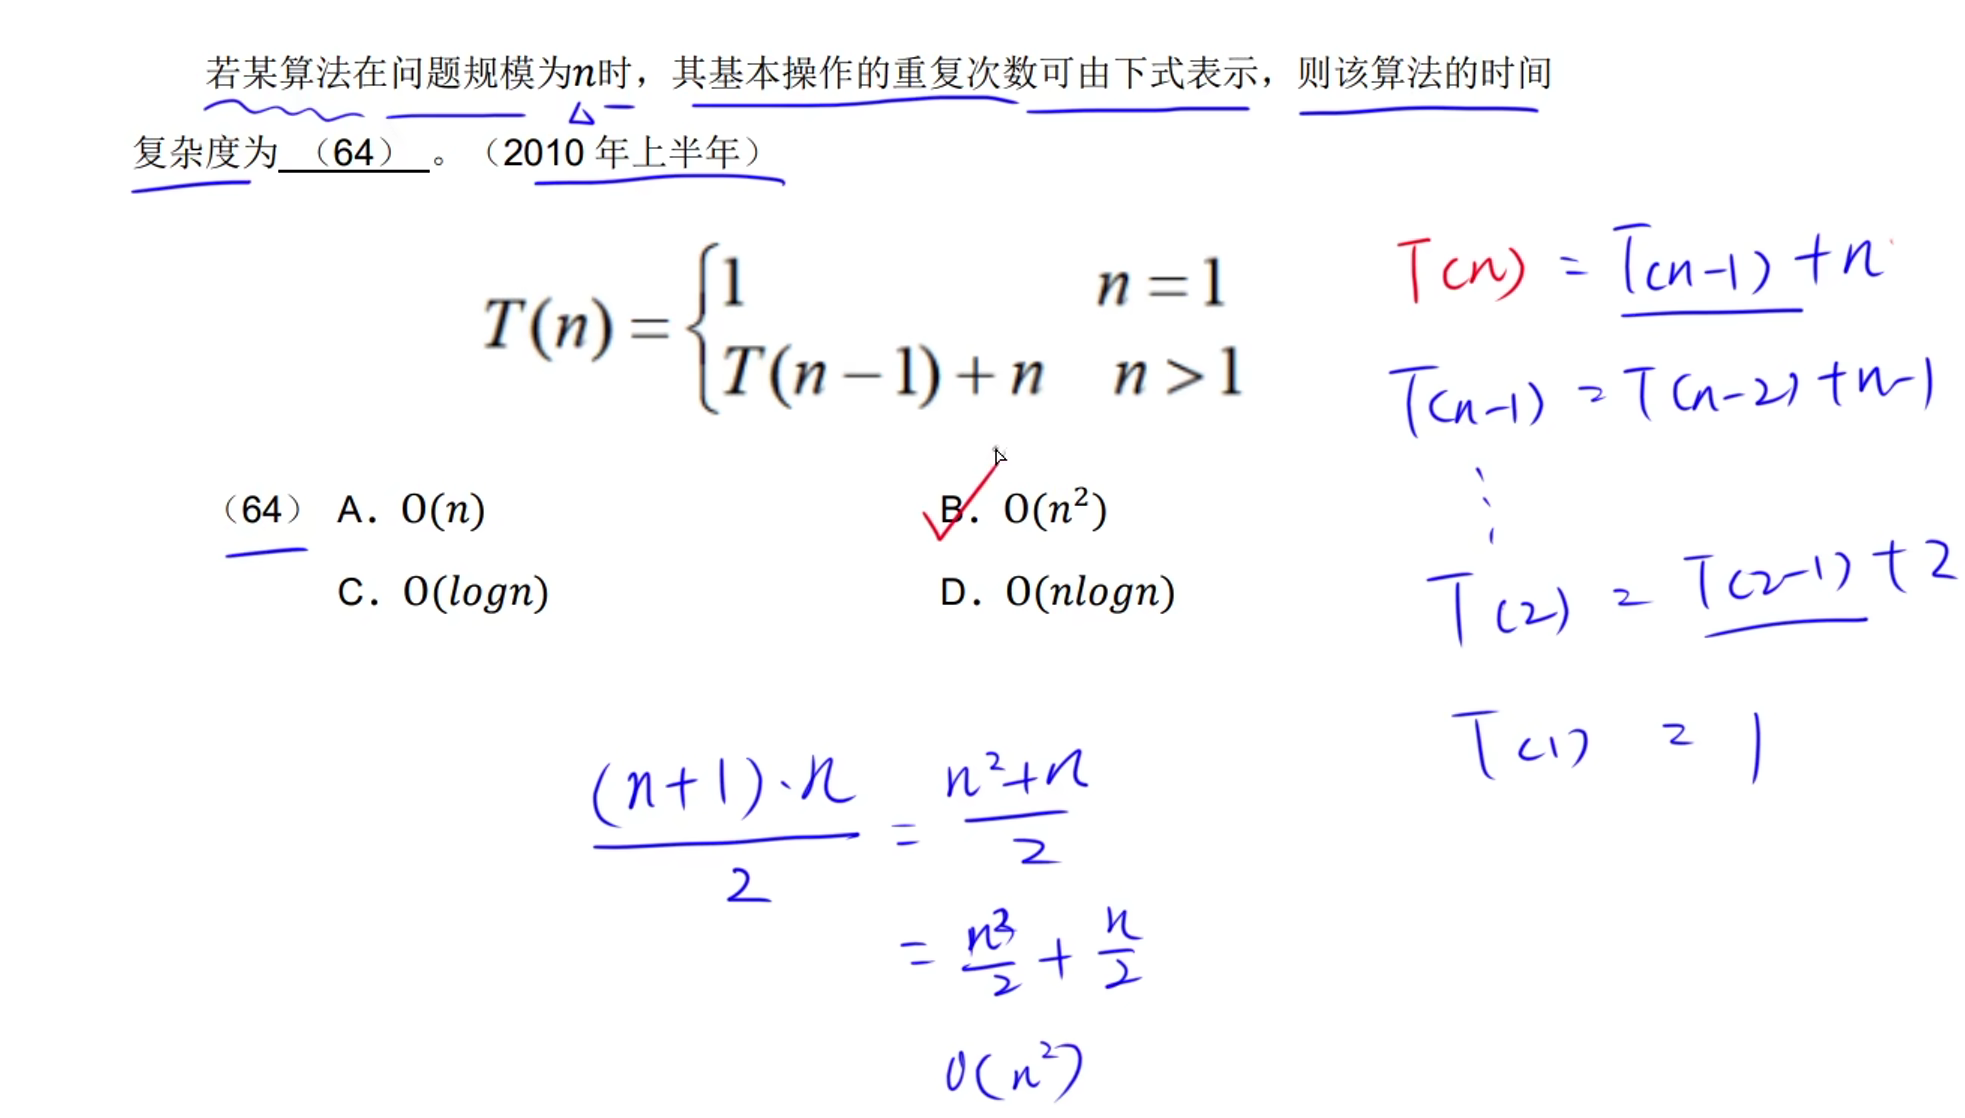 若某算法在问题规模为n时，其基本操作的重复次数可由下式表示，则该算法的时间
复杂度为 （64） 。（2010 年上半年）
T(n) = { 1 n = 1
T(n − 1) + n n > 1
（64） A. O(n) B. O(n²)
C. O(logn) D. O(nlogn)
T(n) = T(n-1) + n
T(n-1) = T(n-2) + n-1
⋮
T(2) = T(2-1) + 2
T(1) = 1
(n+1)·n / 2 = n²+n / 2
= n² / 2 + n / 2
O(n²)